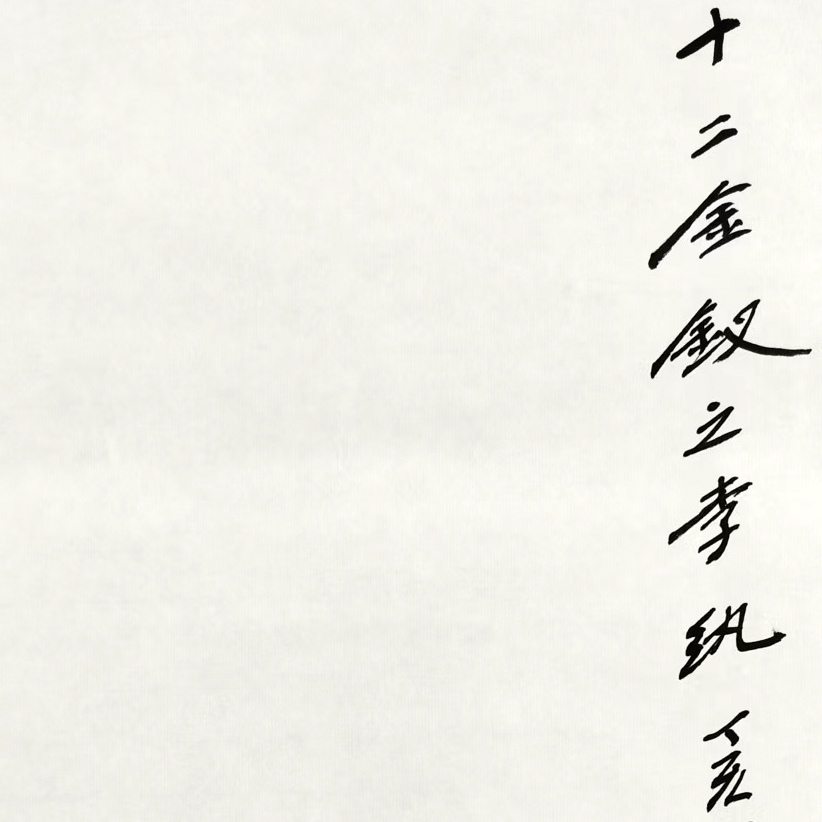 十二金釵之李纨